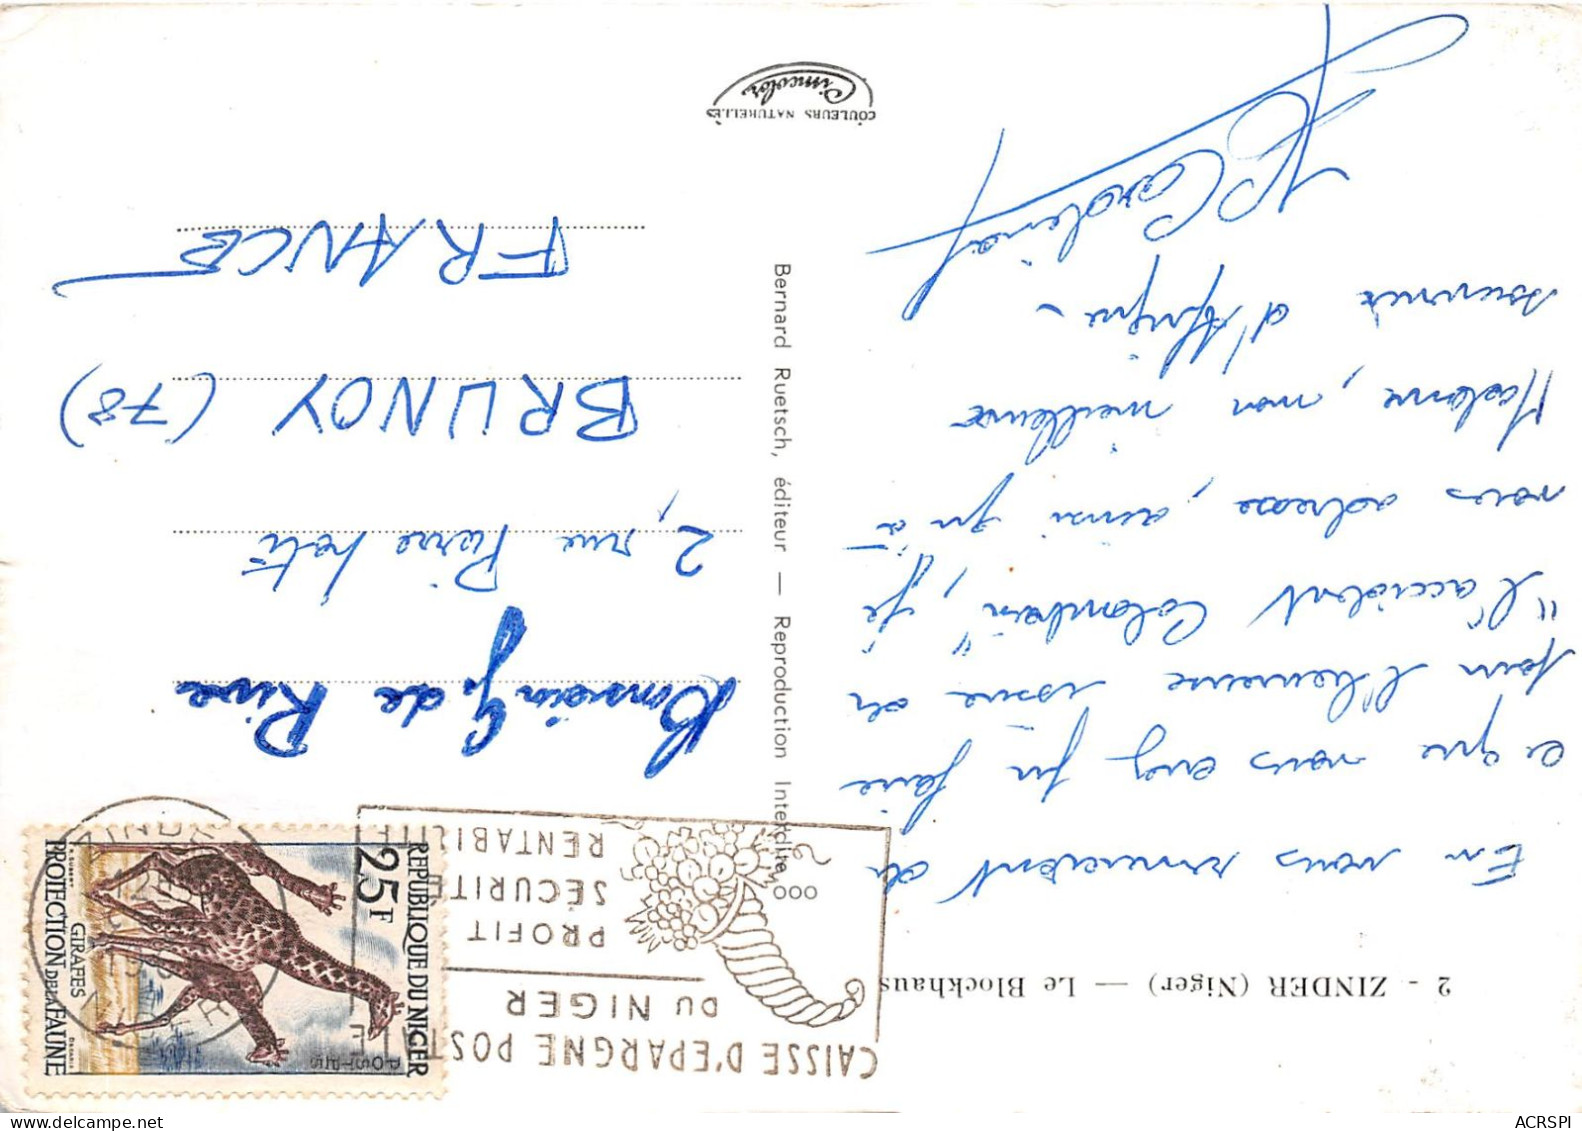 2 - ZINDER (Niger) — Le Blockhaus
En vous remerciant de
ce que vous avez pu faire
pour l'heureuse issue de
"l'accident Colombein", je
vous adresse, ainsi qu'à
Madame, mon meilleur
souvenir d'Afrique -
CAISSE D'EPARGNE POSTALE
DU NIGER
PROFIT
SÉCURITÉ
RENTABILITÉ
REPUBLIQUE DU NIGER
POSTES
25F
GIRAFES
PROTECTION DE LA FAUNE
ZINDER
NIGER
Monsieur G. de Rive
2, rue Pierre Loti
BRUNOY (78)
FRANCE
Bernard Ruetsch, éditeur — Reproduction Interdite
COULEURS NATURELLES
Cimcolor
ACRSPI